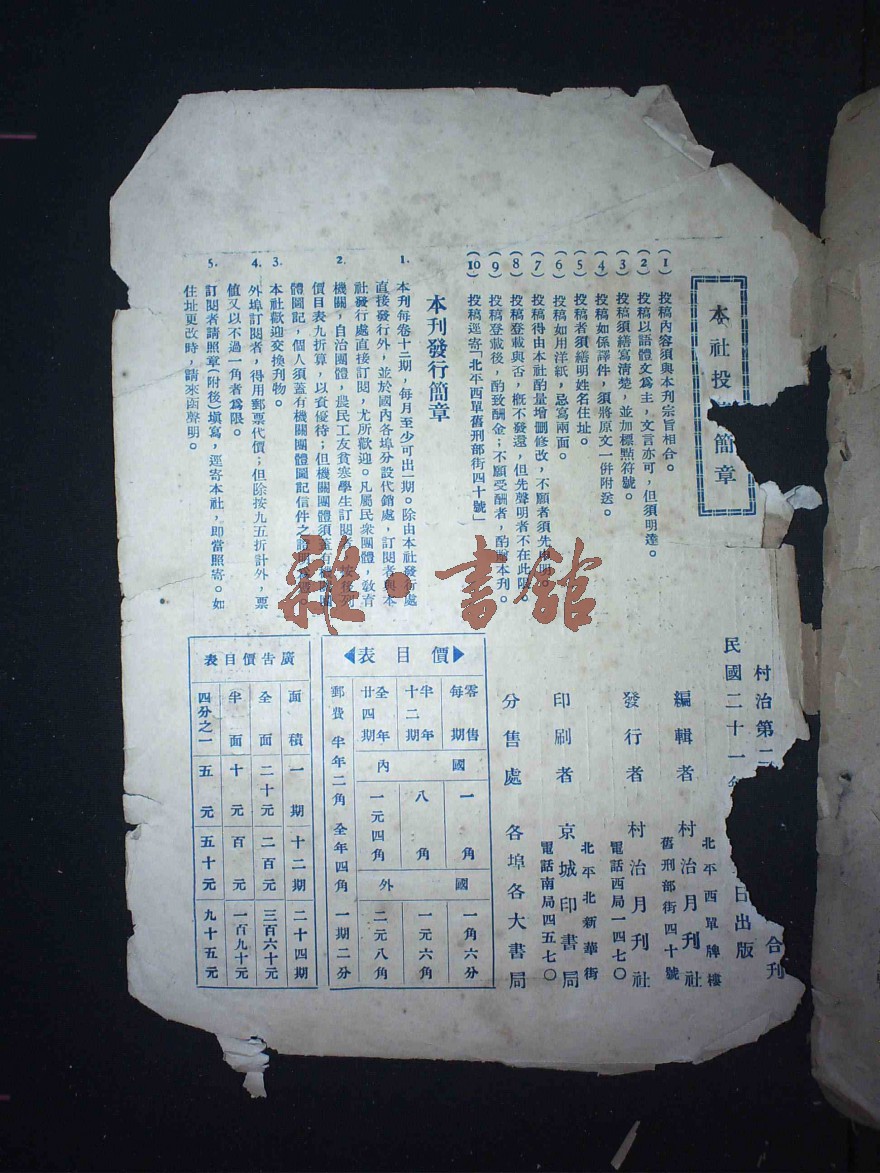 本社投
簡章
(1) 投稿內容須與本刊宗旨相合。
(2) 投稿以語體文爲主，文言亦可，但須明達。
(3) 投稿須繕寫清楚，並加標點符號。
(4) 投稿如係譯件，須將原文一併附送。
(5) 投稿者須繕明姓名住址。
(6) 投稿如用洋紙，忌寫兩面。
(7) 投稿得由本社酌量增删修改，不願者須先申明。
(8) 投稿登載與否，概不發還，但先聲明者不在此限。
(9) 投稿登載後，酌致酬金；不願受酬者，酌本刊。
(10) 投稿逕寄「北平西單舊刑部街四十號」
本刊發行簡章
1. 本刊每卷十二期，每月至少可出一期。除由本社發行處
直接發行外，並於國內各埠分設代銷處，訂閱者與本
社發行處直接訂閱，尤所歡迎。凡屬民衆團體，敎育
2. 機關，自治團體，農民工友貧寒學生訂閱按後列
價目表九折算，以資優待；但機關團體須蓋有機關團
體圖記，個人須蓋有機關團體圖記信件之證明。
3. 本社歡迎交換刊物。
4. 外埠訂閱者，得用郵票代價；但除按九五折計外，票
值又以不過一角者爲限。
5. 訂閱者請照章(附後)塡寫，逕寄本社，即當照寄。如
住址更改時，請來函聲明。
雜·書館
村治第二
合刊
民國二十一
日出版
編輯者 村治月刊社
北平西單牌樓
舊刑部街四十號
發行者 村治月刊社
電話西局一四七〇
印刷者 京城印書局
北平北新華街
電話南局四五七〇
分售處 各埠各大書局
價目表
零售每期 國內 一角 國外 一角六分
半年十二期 八角 一元六角
全年廿四期 一元四角 二元八角
郵費 半年二角 全年四角 一期二分
廣告價目表
面積 一期 十二期 二十四期
全面 二十元 二百元 三百六十元
半面 十元 百元 一百九十元
四分之一 五元 五十元 九十五元